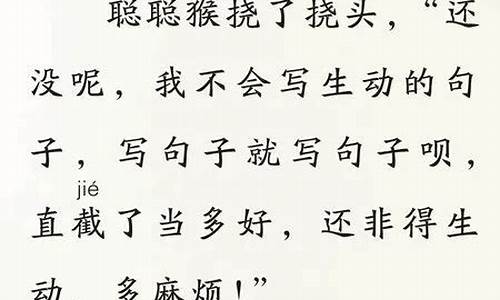 聪聪猴挠了挠头，“还
没呢，我不会写生动的句
子，写句子就写句子呗，
jié
直截了当多好，还非得生
动，多麻烦！”